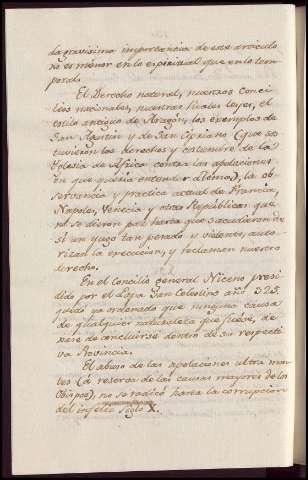 da gravisimo importancia de este articulo
no es menor en lo espiritual que en lo tem-
poral.
El Derecho natural, nuestros Conci-
lios nacionales, nuestras finales leyes, el
estilo antiguo de Aragón, los exemplos de
San Agustin y de San Cipriano (que sos-
tuvieron los derechos y costumbre de la
Yglesia de Africa contra las apelaciones
en que queria entender Roma), la ob-
servancia y practica actual de Francia,
Napoles, Venecia y otras Republicas que
no se dieron paz hasta que sacudieron de
sí un yugo tan pesado y violento, auto-
rizan la execucion, y reclaman nuestro
derecho.
En el Concilio general Niceno presi-
dido por el Papa San Celestino año 325.
quedó ya ordenado que ninguna causa
de qualquier naturaleza que fuese, de-
xase de concluirse dentro de su respecti-
va Provincia.
El abuso de las apelaciones ultra mon-
tes (á reserva de las causas mayores de los
Obispos), no se radicó hasta la corrupcion
del infeliz Siglo X.